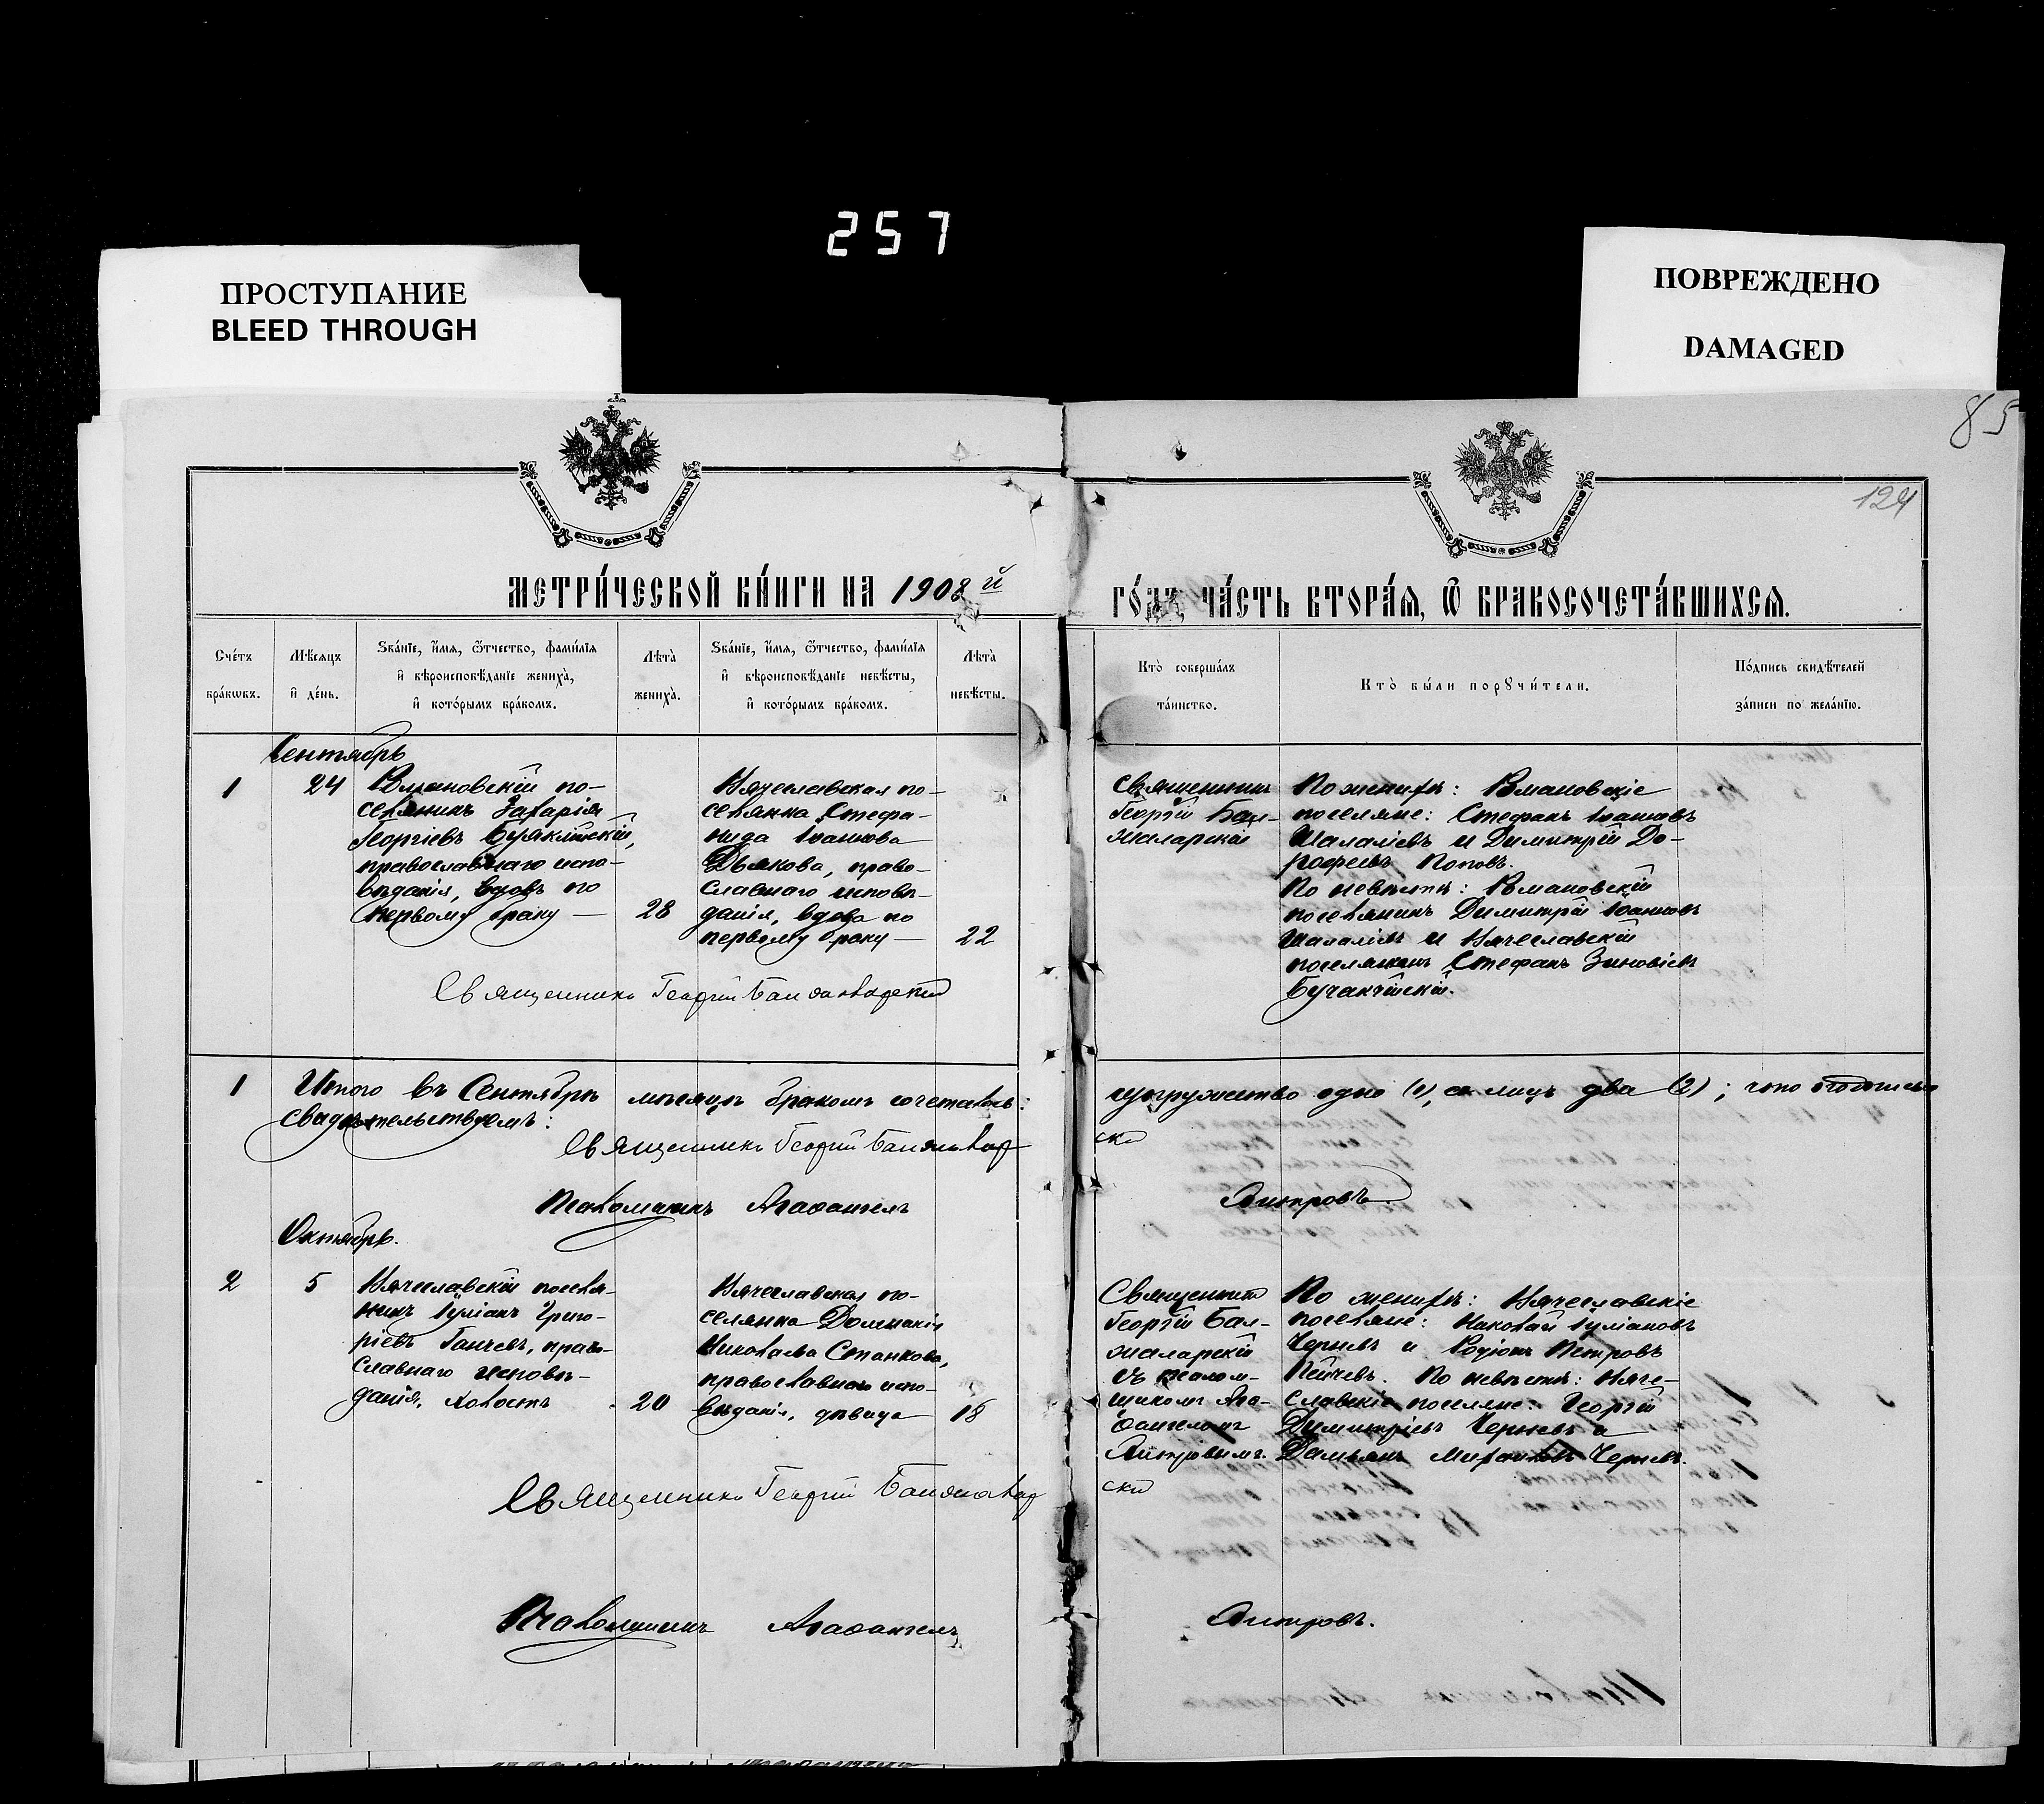 257
ПРОСТУПАНИЕ
BLEED THROUGH
ПОВРЕЖДЕНО
DAMAGED
85
124
МЕТРИ́ЧЕСКОЙ КНИ́ГИ НА 1908 й
ГО́ДЪ, ЧА́СТЬ ВТОРА́Я, Ѡ БРАКОСОЧЕТА́ВШИХСЯ.
Сче́тъ
бра́кѡвъ.
Мѣ́сяцъ
и҆ де́нь.
Ѕва́нїе, и҆́мя, ѻ҆́тчество, фами́лїя
и҆ вѣроисповѣ́данїе жениха̀,
и҆ кото́рымъ бра́комъ.
Лѣта̀
жениха̀.
Ѕва́нїе, и҆́мя, ѻ҆́тчество, фами́лїя
и҆ вѣроисповѣ́данїе невѣ́сты,
и҆ кото́рымъ бра́комъ.
Лѣта̀
невѣ́сты.
Кто̀ соверша́лъ
та́инство.
Кто̀ бы́ли порꙋчи́тели.
По́дпись свидѣ́телей
за́писи по жела́нїю.
Сентябрь
1
24
по-
селянинъ Захарія
Георгіевъ
православнаго испо-
вѣданія, вдовъ по
первому браку —
28
Вячеславская по-
селянка Стефа-
нида Іоаннова
Дьякова, право-
славнаго исповѣ-
данія, вдова по
первому браку —
22
Священникъ
Георгій Бал-
жаларскій
По женихѣ:
поселяне: Стефанъ Іоанновъ
Шаламіевъ и Димитрій До-
рофеевъ Поповъ.
По невѣстѣ:
поселянинъ Димитрій Іоанновъ
и Вячеславскій
поселянинъ Стефанъ Зиновіевъ
Священникъ Георгій Балжаларскій
1
Итого въ Сентябрѣ мѣсяцѣ бракомъ сочеталось:
супружество одно (1), а лицъ два (2); что подписью
свидѣтельствуемъ:
Священникъ Георгій Балжалар
скій
Псаломщикъ Агаѳангелъ
Октябрь.
2
5
Вячеславскій поселя-
нинъ Іуліанъ Григо-
ріевъ Ганчевъ, право-
славнаго исповѣ-
данія, холостъ
20
Вячеславская по-
селянка Домникія
Николаева Станкова,
православнаго испо-
вѣданія, дѣвица
18
Священникъ
Георгій Бал-
жаларскій
съ псалом-
щикомъ Ага-
ѳангеломъ
По женихѣ: Вячеславскіе
поселяне: Николай Іуліановъ
Черневъ и Родіонъ Петровъ
Пейчевъ. По невѣстѣ: Вяче-
славскіе поселяне: Георгій
Димитріевъ Черневъ и
Даміанъ Черневъ.
Священникъ Георгій Балжалар
скій
Псаломщикъ Агаѳангелъ